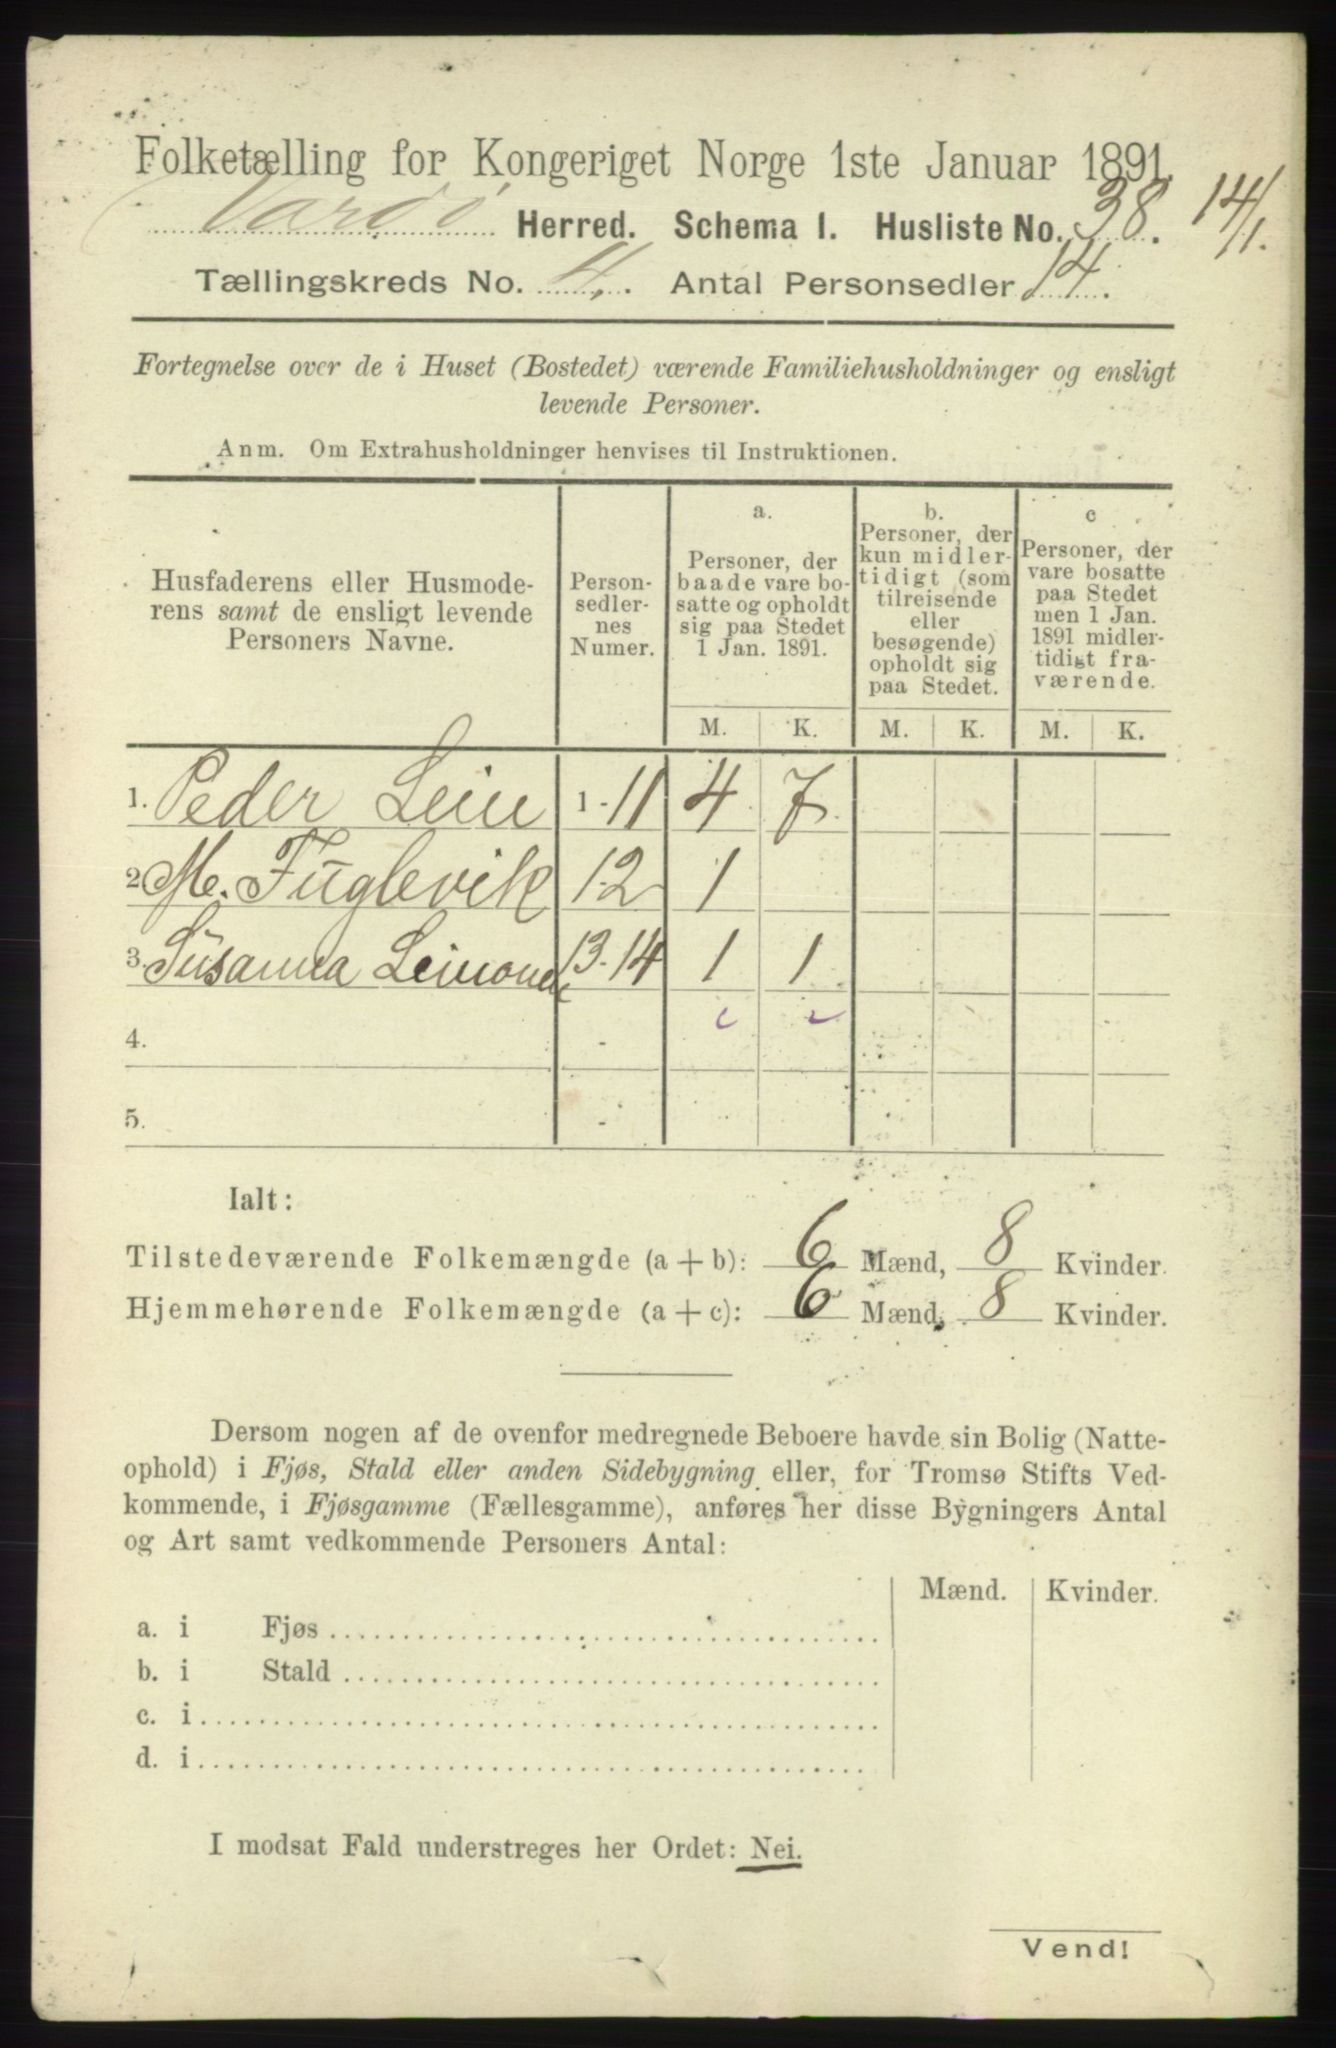 Folketælling for Kongeriget Norge 1ste Januar 1891.
Vardø Herred. Schema 1. Husliste No. 38. 14/1.
Tællingskreds No. 4. Antal Personsedler 14.
Fortegnelse over de i Huset (Bostedet) værende Familiehusholdninger og ensligt
levende Personer.
Anm. Om Extrahusholdninger henvises til Instruktionen.
Husfaderens eller Husmode-
rens samt de ensligt levende
Personers Navne.
Person-
sedler-
nes
Numer.
a.
Personer, der
baade vare bo-
satte og opholdt
sig paa Stedet
1 Jan. 1891.
b.
Personer, der
kun midler-
tidigt (som
tilreisende
eller
besøgende)
opholdt sig
paa Stedet.
c
Personer, der
vare bosatte
paa Stedet
men 1 Jan.
1891 midler-
tidigt fra-
værende.
M. K. M. K. M. K.
1. Peder 1-11 4 7
2 M. Fuglevik 12 1
3. Susanna 13-14 1 1
4. -
5. -
Ialt:
Tilstedeværende Folkemængde (a + b): 6 Mænd, 8 Kvinder.
Hjemmehørende Folkemængde (a + c): 6 Mænd, 8 Kvinder.
Dersom nogen af de ovenfor medregnede Beboere havde sin Bolig (Natte-
ophold) i Fjøs, Stald eller anden Sidebygning eller, for Tromsø Stifts Ved-
kommende, i Fjøsgamme (Fællesgamme), anføres her disse Bygningers Antal
og Art samt vedkommende Personers Antal:
Mænd. Kvinder.
a. i Fjøs
b. i Stald
c. i
d. i
I modsat Fald understreges her Ordet: Nei.
Vend!